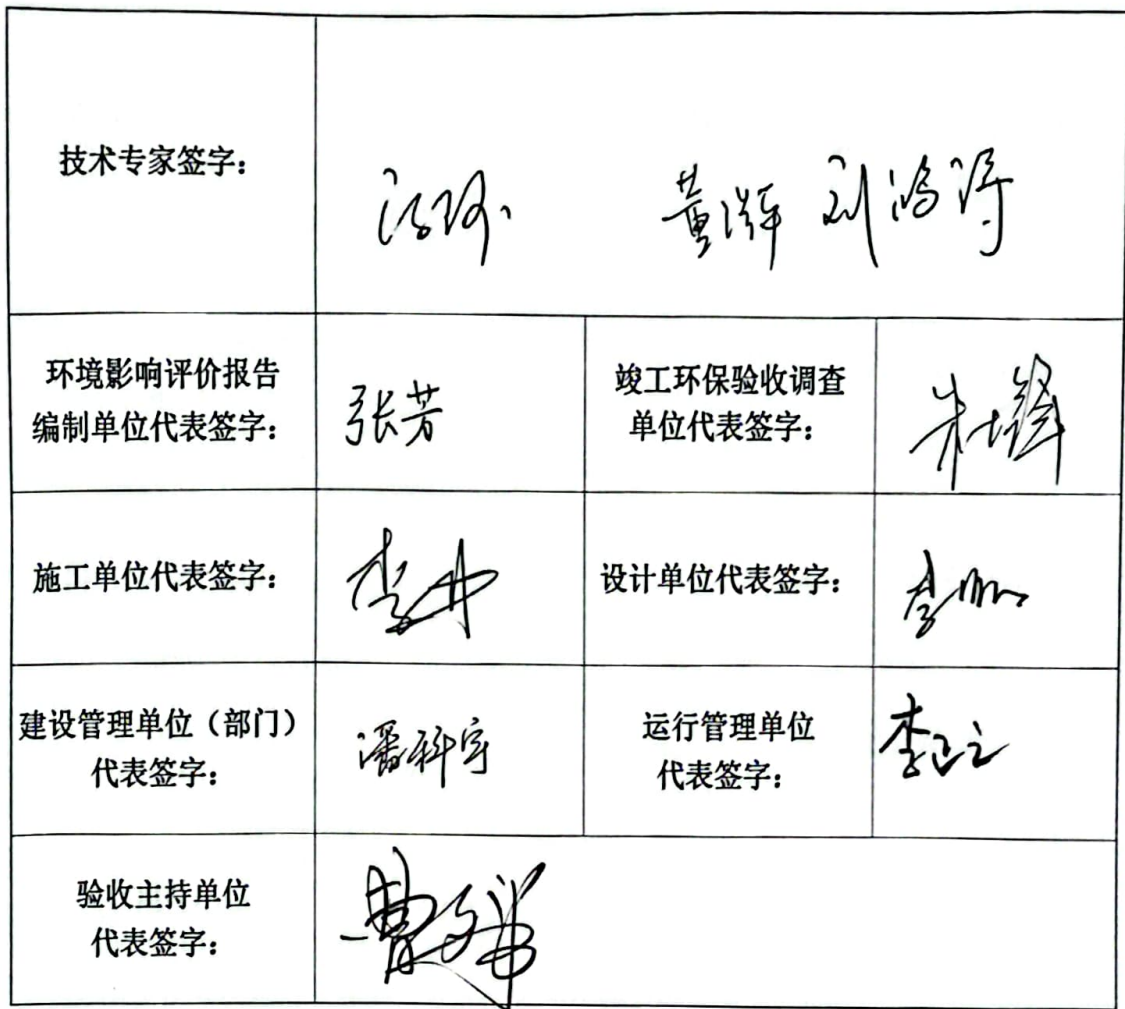 技术专家签字：
刘鸿涛
环境影响评价报告
编制单位代表签字：
张芳
竣工环保验收调查
单位代表签字：
施工单位代表签字：
设计单位代表签字：
建设管理单位（部门）
代表签字：
潘科宇
运行管理单位
代表签字：
验收主持单位
代表签字：